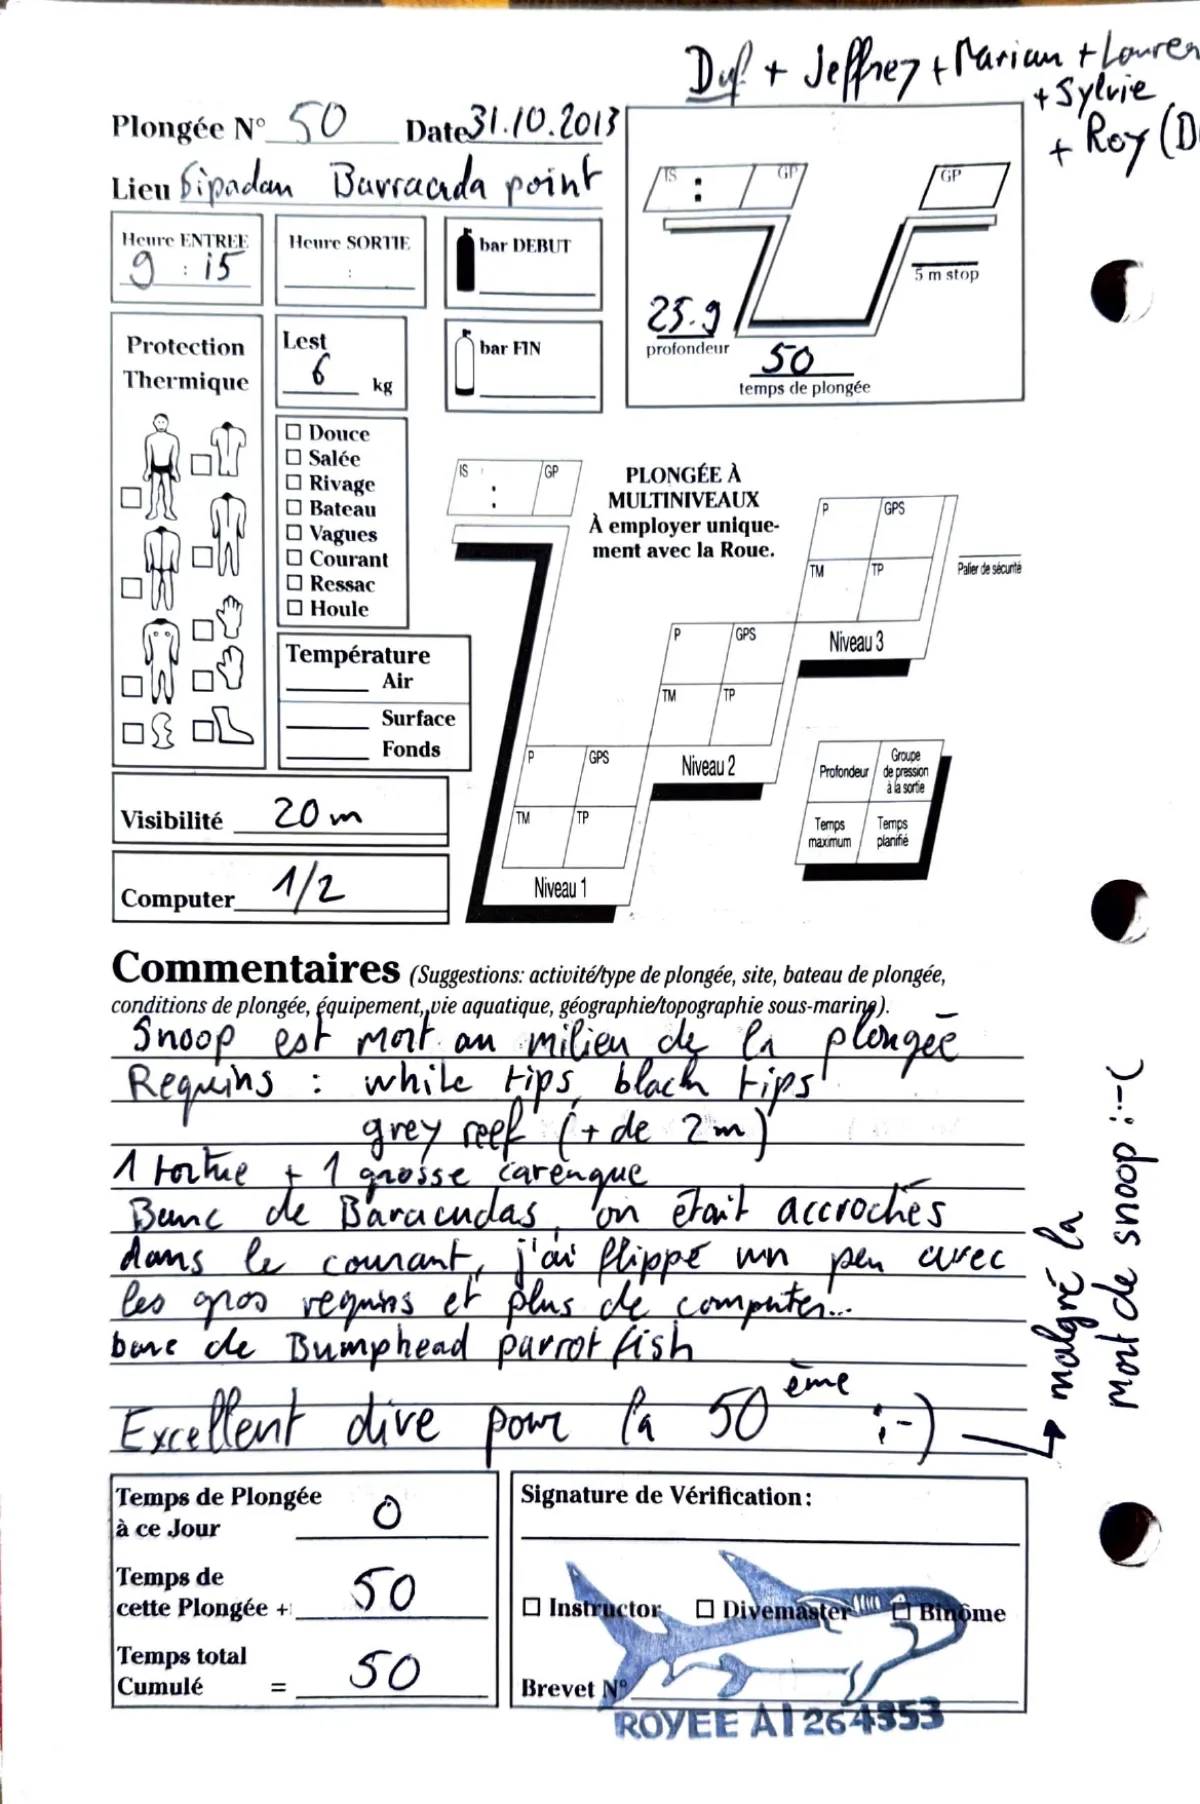 Duf + Jeffrey + Marian + Lauren
+ Sylvie
+ Roy (D
Plongée N° 50 Date 31.10.2013
Lieu Sipadan Barracuda point
Heure ENTREE
9 : 15
Heure SORTIE
:
bar DEBUT
bar FIN
IS : GP
GP
5 m stop
25.9
profondeur
50
temps de plongée
Protection
Thermique
Lest
6 kg
Douce
Salée
Rivage
Bateau
Vagues
Courant
Ressac
Houle
Température
Air
Surface
Fonds
Visibilité 20 m
Computer 1/2
IS : GP
PLONGÉE À
MULTINIVEAUX
À employer unique-
ment avec la Roue.
P GPS
TM TP
Niveau 3
Palier de sécurité
P GPS
TM TP
Niveau 2
P GPS
TM TP
Niveau 1
Profondeur
Groupe
de pression
à la sortie
Temps
maximum
Temps
planifié
Commentaires (Suggestions: activité/type de plongée, site, bateau de plongée,
conditions de plongée, équipement, vie aquatique, géographie/topographie sous-marine).
Snoop est mort au milieu de la plongée
Requins : white tips, black tips
grey reef (+ de 2m)
1 tortue + 1 grosse carengue
Banc de Baracudas, on était accrochés
dans le courant, j'ai flippé un peu avec
les gros requins et plus de computer...
banc de Bumphead parrot fish
Excellent dive pour la 50 ème ;-)
→ malgré la
mort de snoop :-(
Temps de Plongée
à ce Jour 0
Temps de
cette Plongée + 50
Temps total
Cumulé = 50
Signature de Vérification:
Instructor Divemaster Binôme
Brevet N°
ROYEE AI 264353